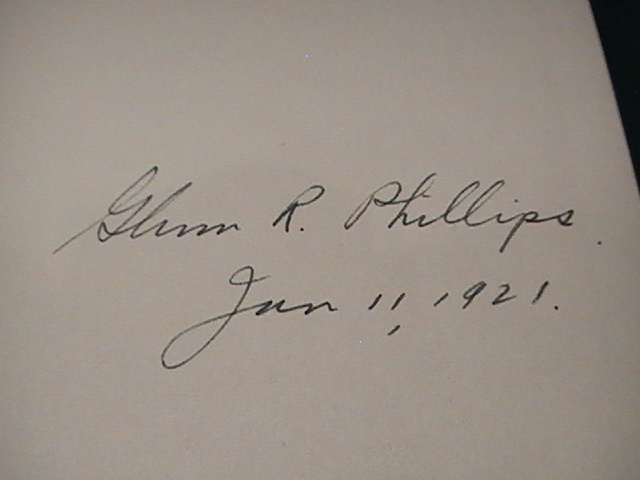 Glenn R. Phillips.
Jan 11, 1921.